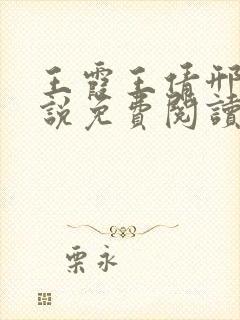 王霞王倩邢
說免費閱讀
栗永